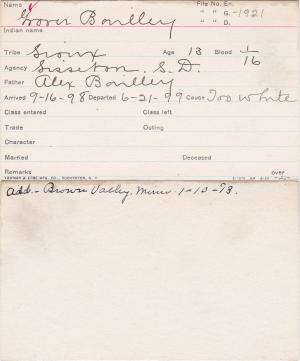 Name Grover Bonlley File No. En.
" " G. -1921
Indian name " " D.
Tribe Sioux Age 13 Blood 1/16
Agency Sisseton, S. D.
Father Alex Bonlley
Arrived 9-16-98 Departed 6-21-99 Cause Too white
Class entered Class left
Trade Outing
Character
Married Deceased
Remarks over
Add.- Brown Valley, Minn. 1-10-73.